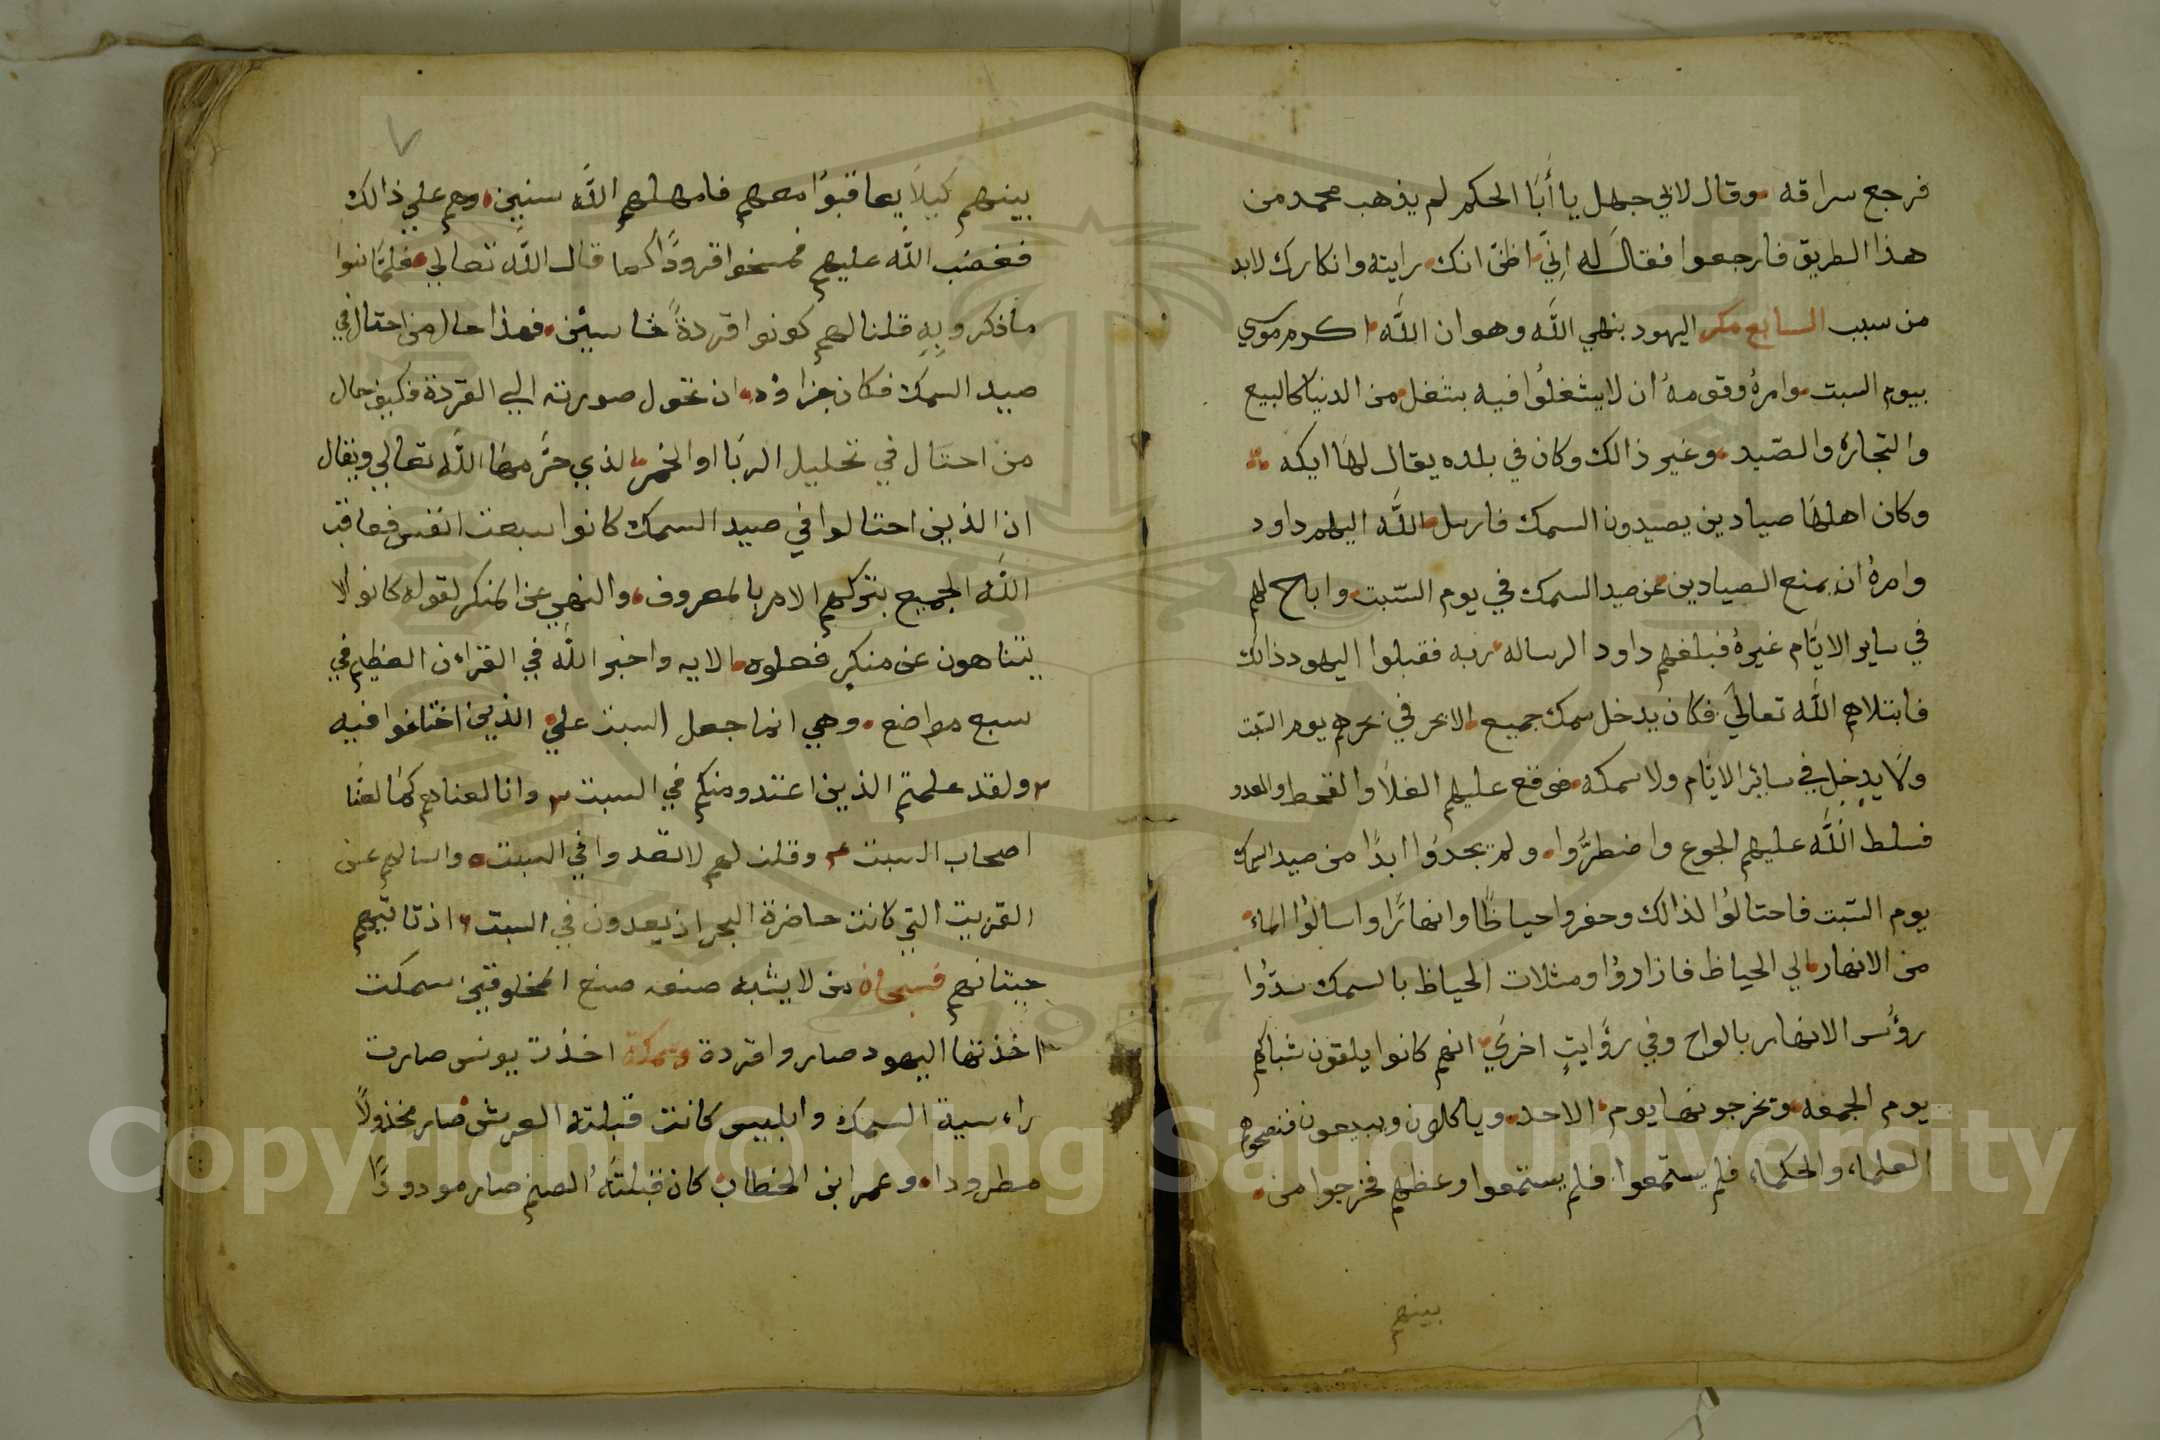 فرجع سراقه وقال لابي جهل يا أبا الحكم لم يذهب محمد من
هذا الطريق فارجعوا فقال له انّي اظنّ انك رايته وانكارك لابد
من سبب السابع مكر اليهود بنهي اللّه وهو ان اللّه اكرم موسي
بيوم السبت وامرهُ وقومهُ ان لايشغلوُا فيه بشغل من الدنيا كالبيع
والتجاره والصّيد وغير ذالك وكان في بلده يقال لهَا ايكه
وكان اهلهَا صيادين يصيدون السمك فارسل اللّه اليهم داود
وامرهُ ان يمنع الصيادين عن صيد السمك في يوم السّبت واباح لهم
في ساير الايّام غيرهُ فبلغهم داود الرساله ربه فقبلوا اليهود ذالك
فابتلاهم اللّه تعاليَ فكان يدخل سمك جميع الابحر في بحرهم يوم السّبت
ولَا يدخل في سائر الايّام ولا سمكه فوقع عليهم الغلَا والقحط والعدو
فسلط اللّه عليهم الجوع واضطرّوا ولم يجدوُا ابدًا من صيد السمك
يوم السّبت فاحتالوُا لذالك وحفروا حياظًا وانهارًا واسالوُا الماءَ
من الانهار الي الحياظ فازاروُا ومثلات الحياظ بالسمك سدّوُا
روُس الانهار بالواح وفي روَايتٍ اخريَ انهم كانوا يلقون شباكهم
يوم الجمعه وتخرجونها يوم الاحد وياكلون ويبيعون فنصحوهم
العلماء والحكماء فلم يستمعوا فلم يستمعوا وعظهم فخرجوا من
بينهم
٧
بينهم كيلَا يعاقبوُا معهم فامهلهم اللّه سنين وهم علي ذالك
فغضب اللّه عليهم فمسخوا قرودًا كما قال اللّه تعالي فلمّا نسوا
ماذكروبهِ قلنا لهم كونوا قردةً خاسئين فهذا حال من احتال في
صيد السمك فكان جزاؤه ان تحول صورته الي القردة فكيف حال
من احتال في تحليل الربَا او الخمر الذي حرَّمهَا اللّه تعالي ويقال
ان الذين احتالوا في صيد السمك كانوا سبعت انفس فعاقب
اللّه الجميع بتركهم الامر بالمعروف والنهي عن المنكر لقوله كانوا لا
يتناهون عن منكر فعلوه الايه واخبر اللّه في القراءن العظيم في
سبع مواضع وهي انما جعل السبت علي الذين اختلفوا فيه
ولقد علمتم الذين اعتدو منكم في السبت وانا لعناهم كما لعنّا
اصحاب السبت وقلنا لهم لاتعدوا في السبت واسالهم عن
القريت التي كانت حاضرة البحر اذ يعدون في السبت اذ تاتيهم
حيتانهم فسبحان من لا يشبه صنعه صنع المخلوقين سمكت
اخذتها اليهود صاروا قردة وسمكة اخذت يونس صارت
راءسية السمك وابليس كانت قبلته العرش صار مخذولًا
مطرودا وعمر ابن الخطاب كان قبلتهُ الصنم صار مودودًا